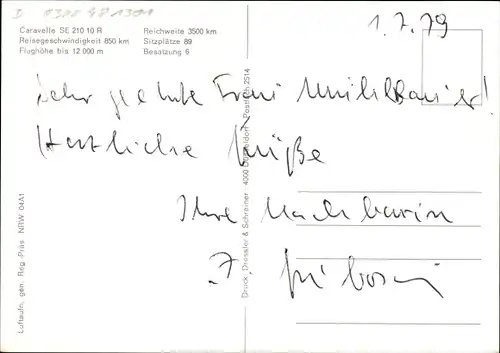 1.7.79
Caravelle SE 210 10 R
Reisegeschwindigkeit 850 km
Flughöhe bis 12 000 m
Reichweite 3500 km
Sitzplätze 89
Besatzung 6
Sehr geehrte Frau Mühlbauer!
Herzliche Grüße
Ihre Nachbarin
Luftaufn. gen. Reg.-Präs NRW 04A1
Druck, Dressler & Schreiner · 4000 Düsseldorf · Postfach 2514